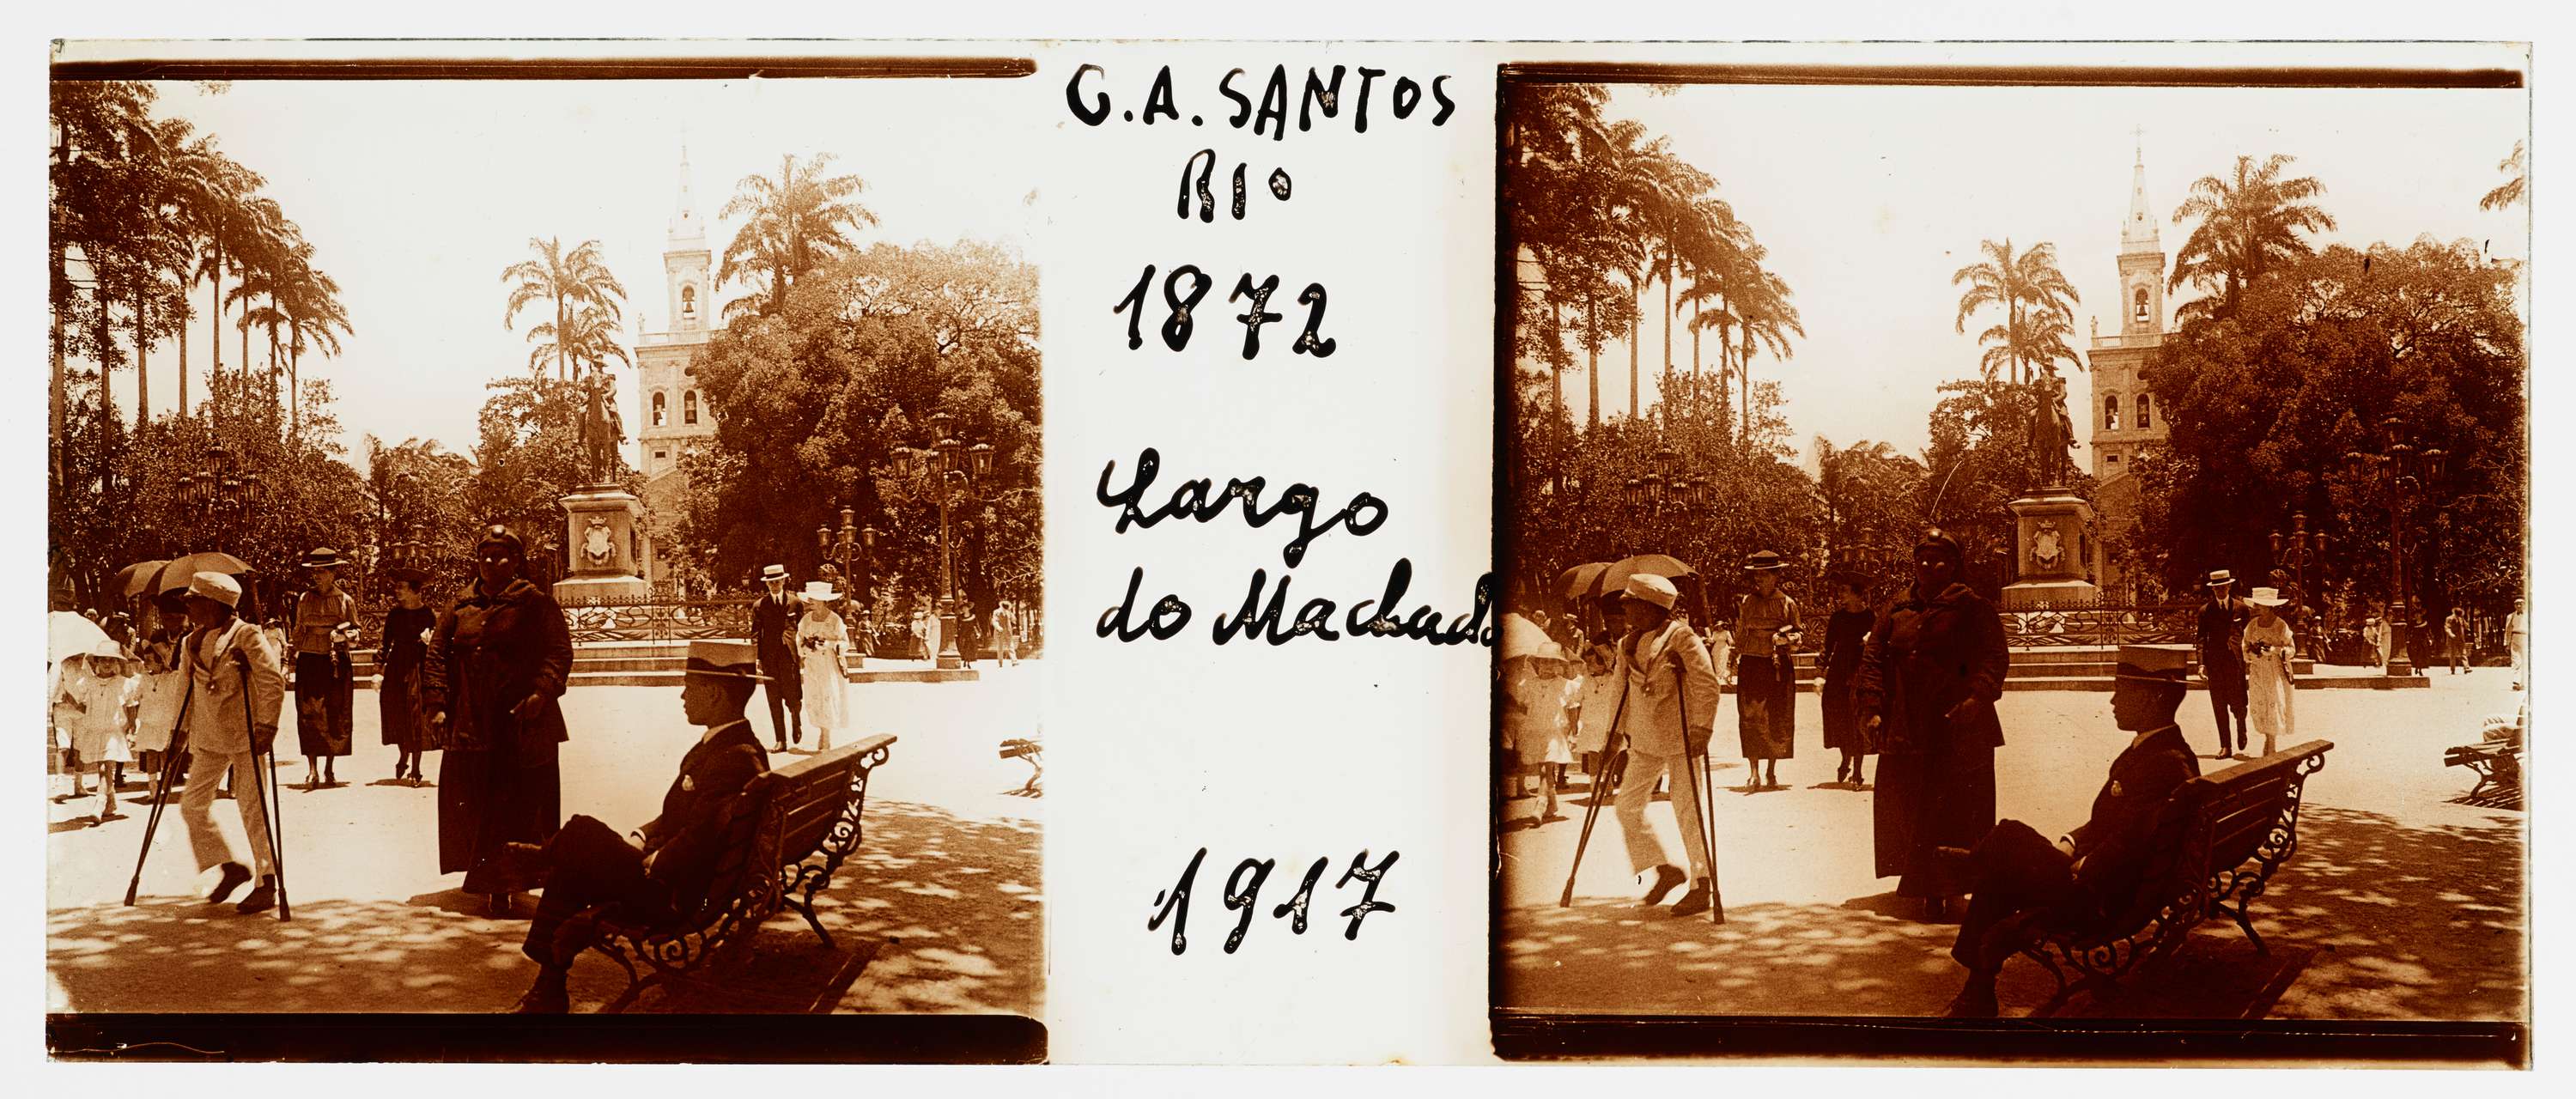 G.A. SANTOS
RIO
1872
Largo
do Machado
1917